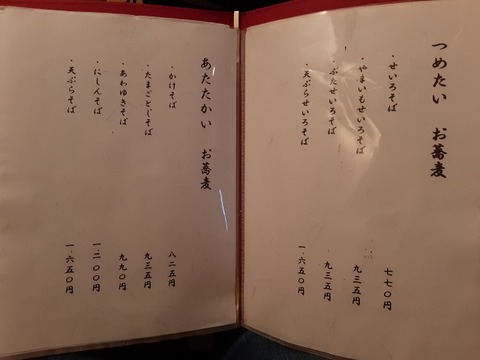 つめたい お蕎麦
・せいろそば 七七〇円
・やまいもせいろそば 九三五円
・ぶたせいろそば 九三五円
・天ぷらせいろそば 一・六五〇円
あたたかい お蕎麦
・かけそば 八二五円
・たまごとじそば 九三五円
・あわゆきそば 九九〇円
・にしんそば 一・二〇〇円
・天ぷらそば 一・六五〇円